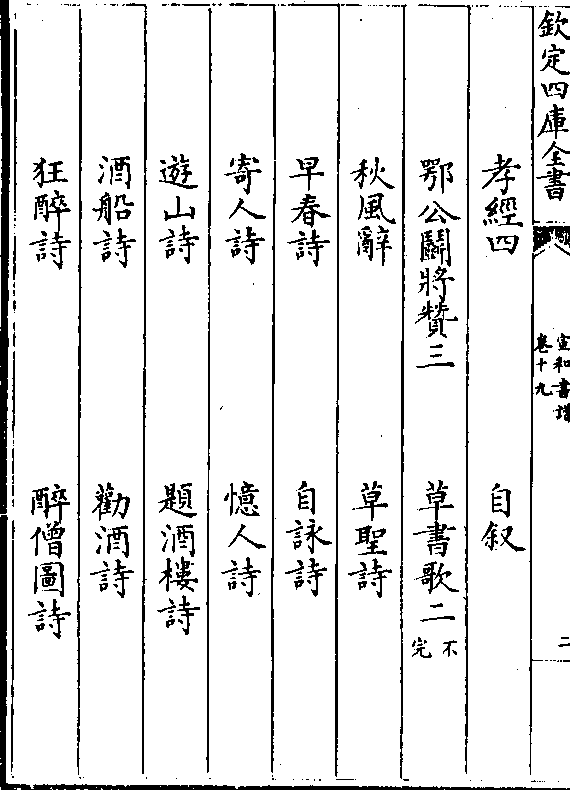 欽定四庫全書
宣和書譜
卷十九
二
孝經四　自叙
鄂公鬭將贊三　草書歌二不完
秋風辭　草聖詩
早春詩　自詠詩
寄人詩　憶人詩
遊山詩　題酒樓詩
酒船詩　勸酒詩
狂醉詩　醉僧圖詩